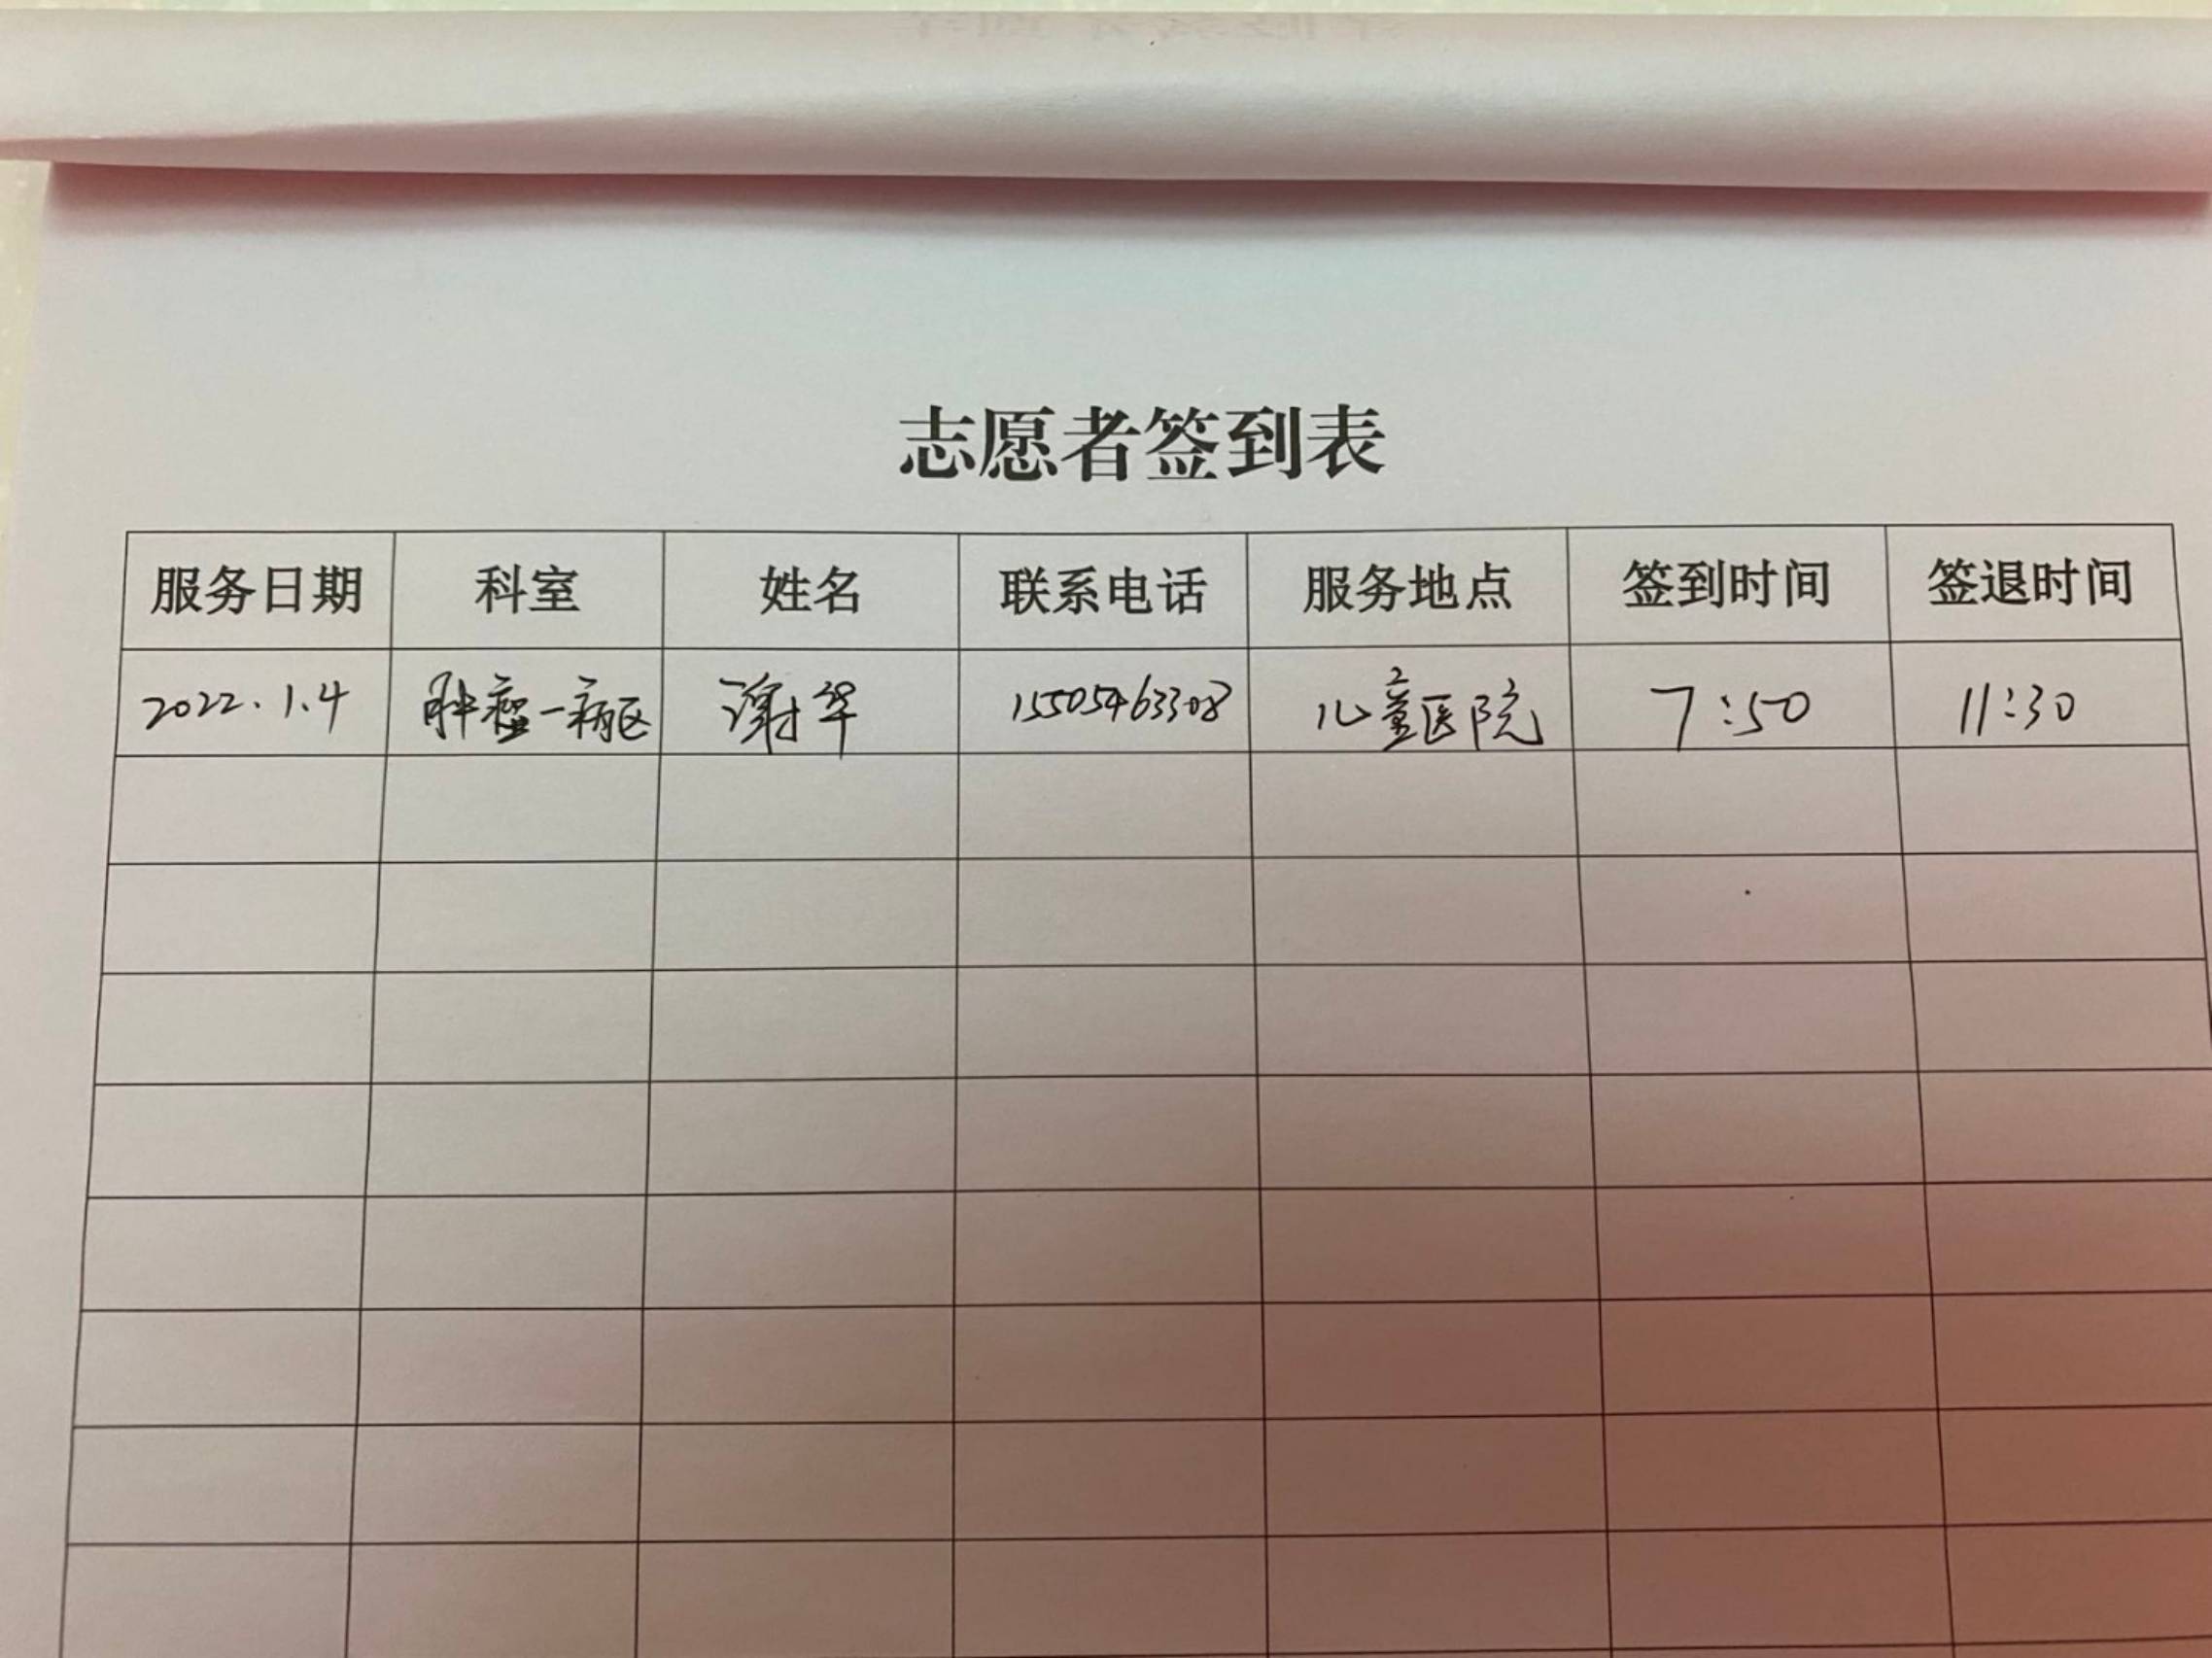 志愿者签到表
服务日期 科室 姓名 联系电话 服务地点 签到时间 签退时间
2022.1.4 肿瘤一病区 谢华 15505463308 儿童医院 7:50 11:30